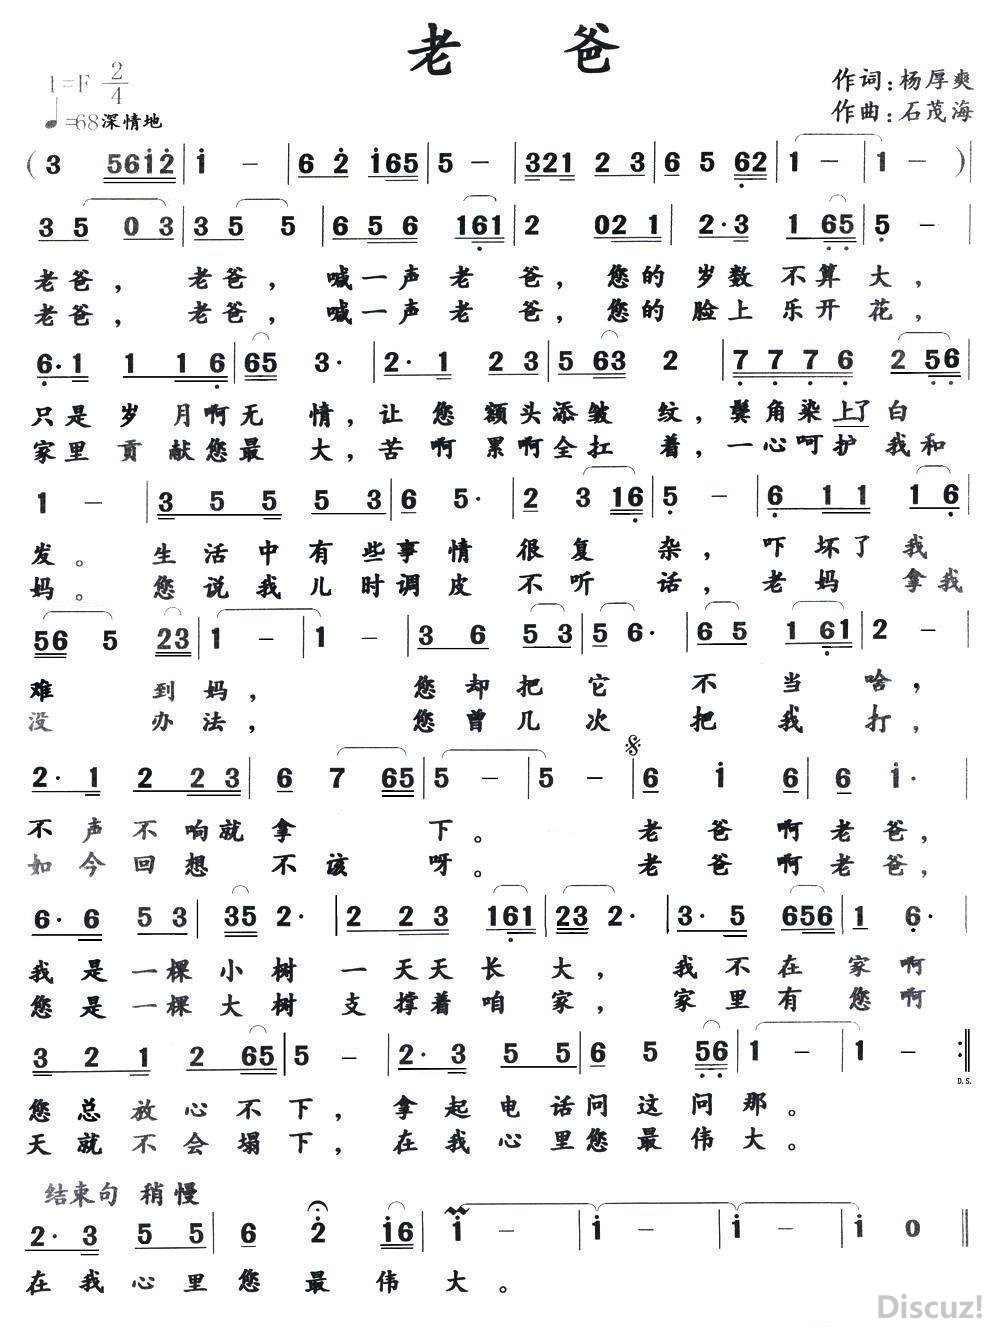 老 爸
1=F 2/4
作词:杨厚爽
♩=68深情地
作曲:石茂海
( 3 561̇2̇ | 1̇ - | 6 2̇ 1̇65 | 5 - | 321 2 3 | 6 5 62 | 1 - | 1 - )|
3 5 0 3 | 3 5 5 | 6 5 6 161 | 2 021 | 2·3 1 65 | 5 - |
老爸， 老爸，喊一声老爸，您的岁数不算大，
老爸， 老爸，喊一声老爸，您的脸上乐开花，
6·1 1 1 6 | 65 3· | 2·1 2 3 | 5 63 2 | 7 7 7 6 2 56 |
只是岁月啊无情，让您额头添皱纹，鬓角染上了白
家里贡献您最大，苦啊累啊全扛着，一心呵护我和
1 - | 3 5 5 5 3 | 6 5· | 2 3 16 | 5 - | 6 1 1 1 6 |
发。生活中有些事情很复杂，吓坏了我
妈。您说我儿时调皮不听话，老妈拿我
56 5 23 | 1 - | 1 - | 3 6 5 3 | 5 6· | 6 5 1 61 | 2 - |
难到妈，您却把它不当啥，
没办法，您曾几次把我打，
2·1 2 2 3 | 6 7 65 | 5 - | 5 - | 6 1̇ 6 | 6 1̇· |
不声不响就拿下。老爸啊老爸，
如今回想不该呀。老爸啊老爸，
6·6 5 3 | 35 2· | 2 2 3 161 | 23 2· | 3·5 656 | 1 6· |
我是一棵小树一天天长大，我不在家啊
您是一棵大树支撑着咱家，家里有您啊
3 2 1 2 65 | 5 - | 2·3 5 5 | 6 5 56 | 1 - | 1 - :‖
D.S.
您总放心不下，拿起电话问这问那。
天就不会塌下，在我心里您最伟大。
结束句 稍慢
2·3 5 5 | 6 2̇ 1̇6 | 1̇ - | 1̇ - | 1̇ - | 1̇ 0 ‖
在我心里您最伟大。
Discuz!